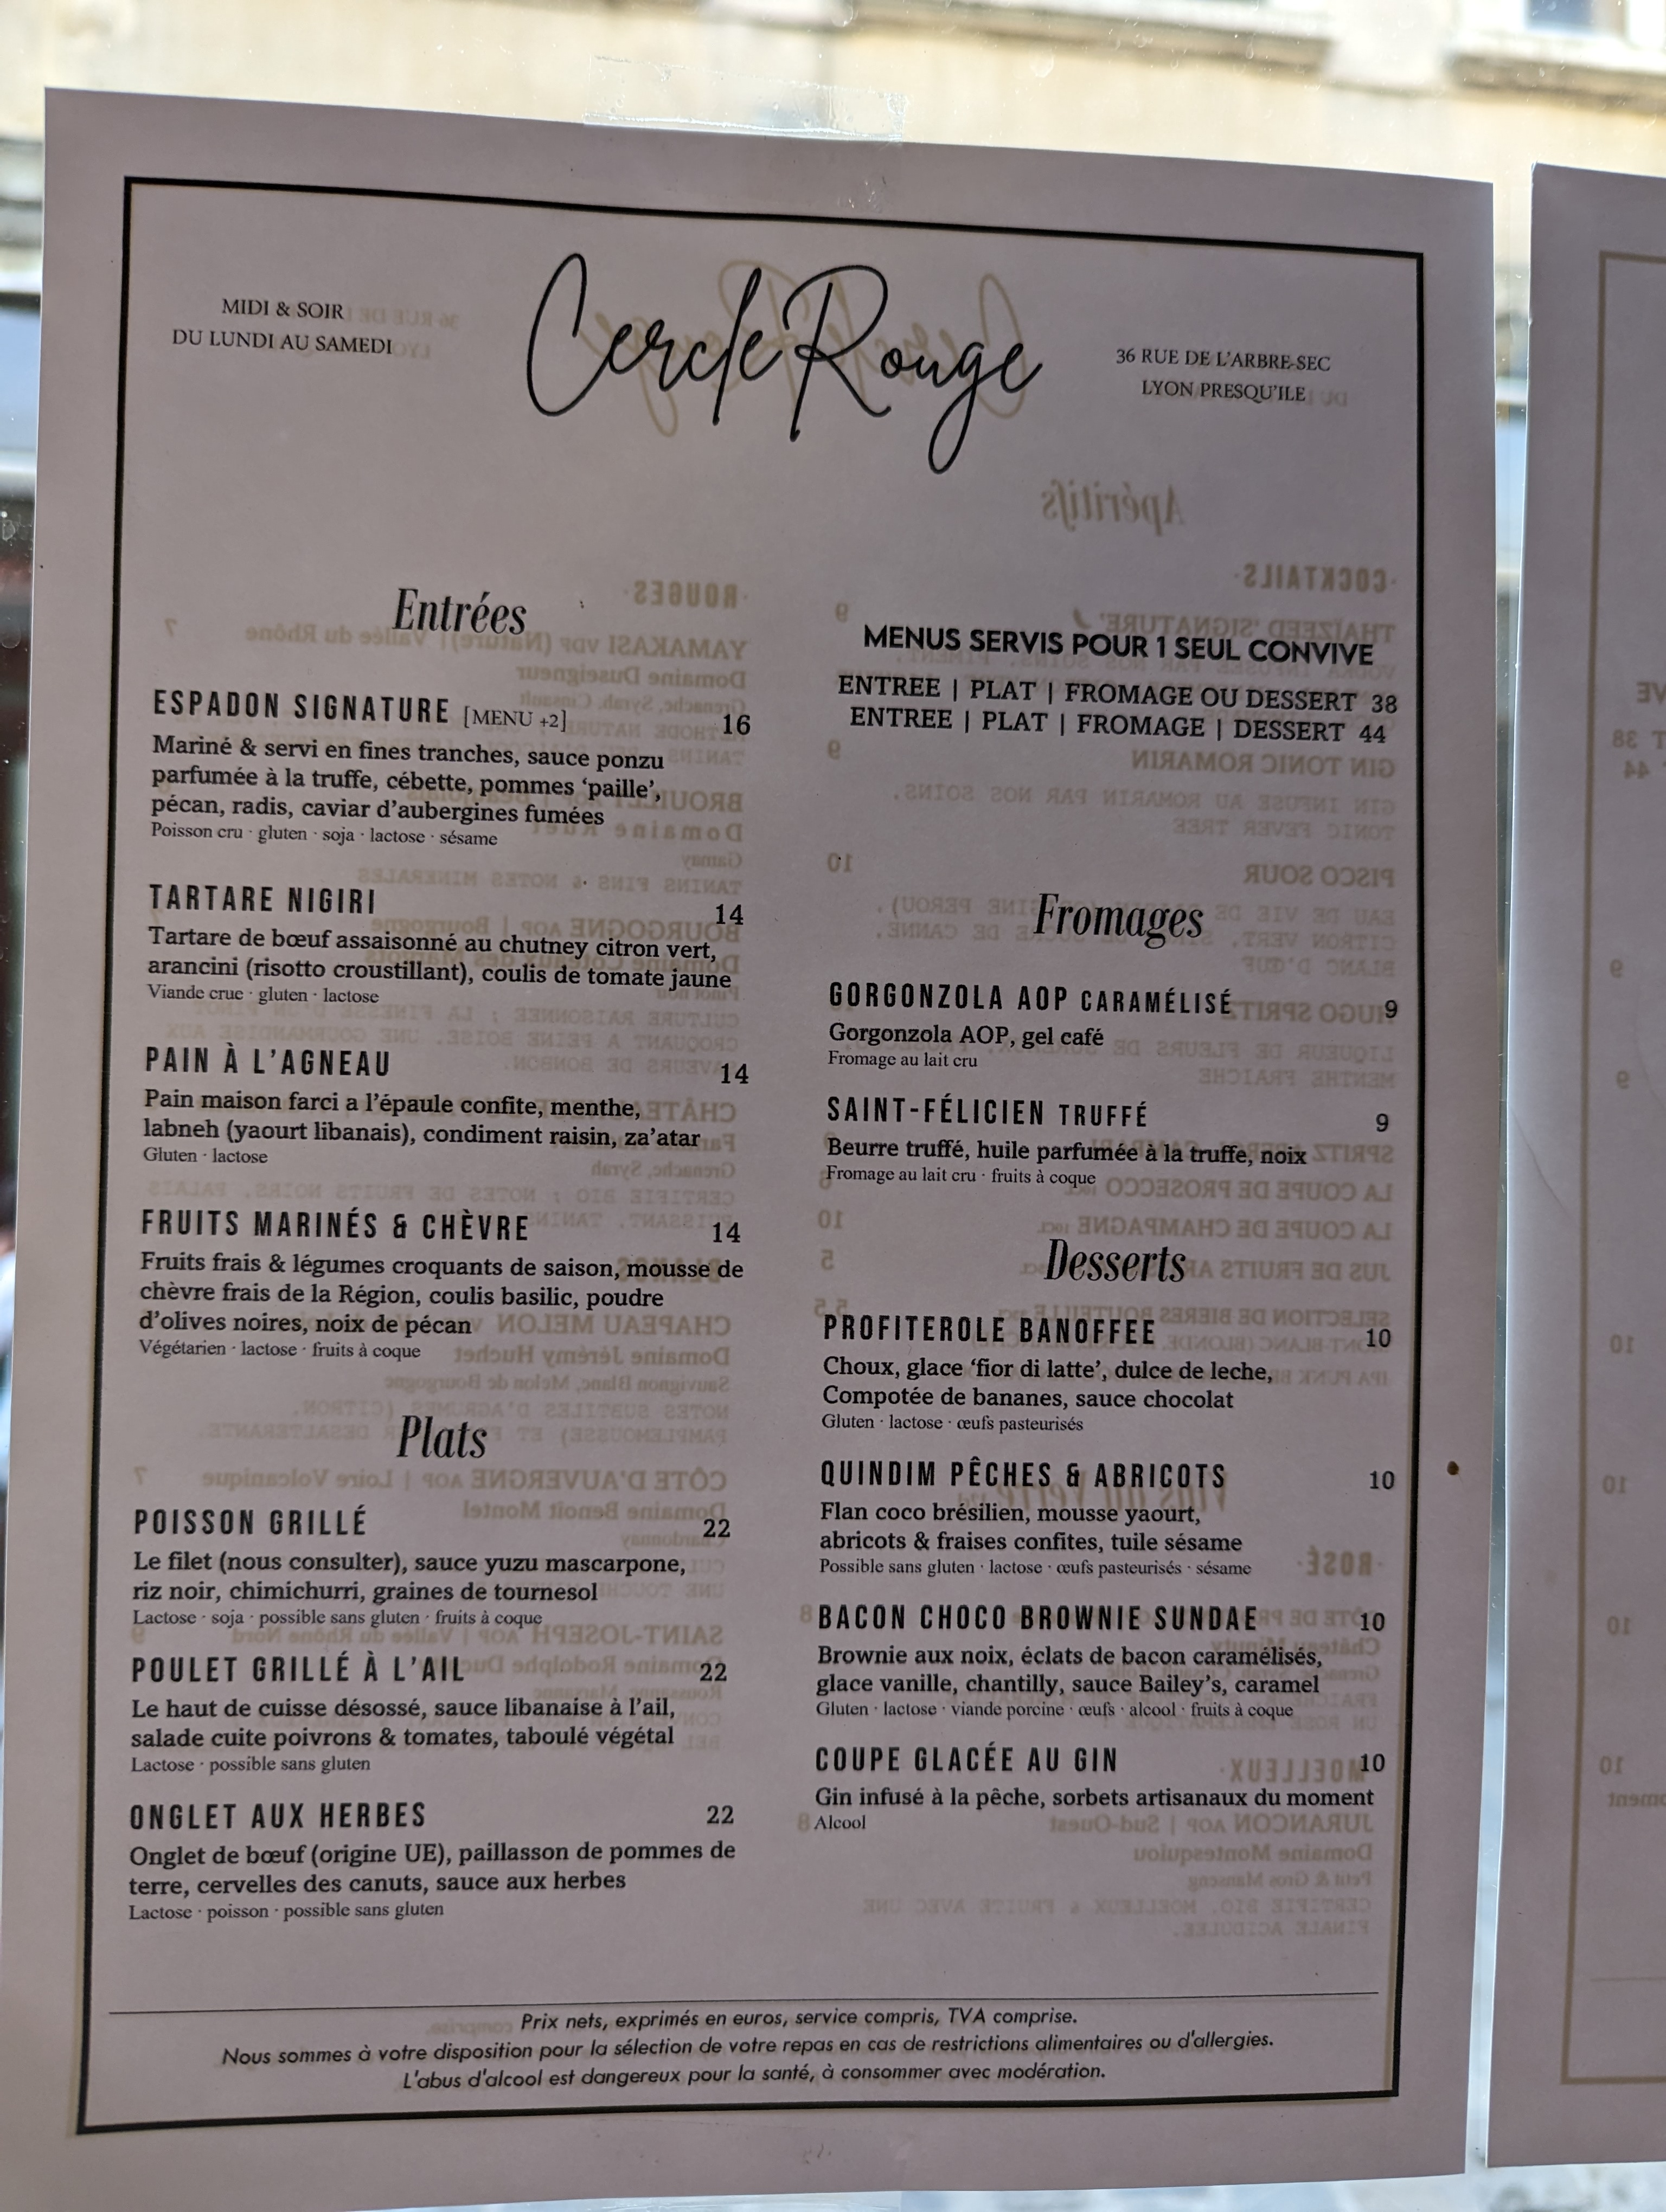 MIDI & SOIR
DU LUNDI AU SAMEDI
Cercle Rouge
36 RUE DE L'ARBRE-SEC
LYON PRESQU'ILE
Entrées
ESPADON SIGNATURE [MENU +2] 16
Mariné & servi en fines tranches, sauce ponzu
parfumée à la truffe, cébette, pommes ‘paille’,
pécan, radis, caviar d'aubergines fumées
Poisson cru · gluten · soja · lactose · sésame
TARTARE NIGIRI 14
Tartare de bœuf assaisonné au chutney citron vert,
arancini (risotto croustillant), coulis de tomate jaune
Viande crue · gluten · lactose
PAIN À L'AGNEAU 14
Pain maison farci a l'épaule confite, menthe,
labneh (yaourt libanais), condiment raisin, za'atar
Gluten · lactose
FRUITS MARINÉS & CHÈVRE 14
Fruits frais & légumes croquants de saison, mousse de
chèvre frais de la Région, coulis basilic, poudre
d'olives noires, noix de pécan
Végétarien · lactose · fruits à coque
Plats
POISSON GRILLÉ 22
Le filet (nous consulter), sauce yuzu mascarpone,
riz noir, chimichurri, graines de tournesol
Lactose · soja · possible sans gluten · fruits à coque
POULET GRILLÉ À L'AIL 22
Le haut de cuisse désossé, sauce libanaise à l'ail,
salade cuite poivrons & tomates, taboulé végétal
Lactose · possible sans gluten
ONGLET AUX HERBES 22
Onglet de bœuf (origine UE), paillasson de pommes de
terre, cervelles des canuts, sauce aux herbes
Lactose · poisson · possible sans gluten
MENUS SERVIS POUR 1 SEUL CONVIVE
ENTREE | PLAT | FROMAGE OU DESSERT 38
ENTREE | PLAT | FROMAGE | DESSERT 44
Fromages
GORGONZOLA AOP CARAMÉLISÉ 9
Gorgonzola AOP, gel café
Fromage au lait cru
SAINT-FÉLICIEN TRUFFÉ 9
Beurre truffé, huile parfumée à la truffe, noix
Fromage au lait cru · fruits à coque
Desserts
PROFITEROLE BANOFFEE 10
Choux, glace ‘fior di latte’, dulce de leche,
Compotée de bananes, sauce chocolat
Gluten · lactose · œufs pasteurisés
QUINDIM PÊCHES & ABRICOTS 10
Flan coco brésilien, mousse yaourt,
abricots & fraises confites, tuile sésame
Possible sans gluten · lactose · œufs pasteurisés · sésame
BACON CHOCO BROWNIE SUNDAE 10
Brownie aux noix, éclats de bacon caramélisés,
glace vanille, chantilly, sauce Bailey's, caramel
Gluten · lactose · viande porcine · œufs · alcool · fruits à coque
COUPE GLACÉE AU GIN 10
Gin infusé à la pêche, sorbets artisanaux du moment
Alcool
Prix nets, exprimés en euros, service compris, TVA comprise.
Nous sommes à votre disposition pour la sélection de votre repas en cas de restrictions alimentaires ou d'allergies.
L'abus d'alcool est dangereux pour la santé, à consommer avec modération.